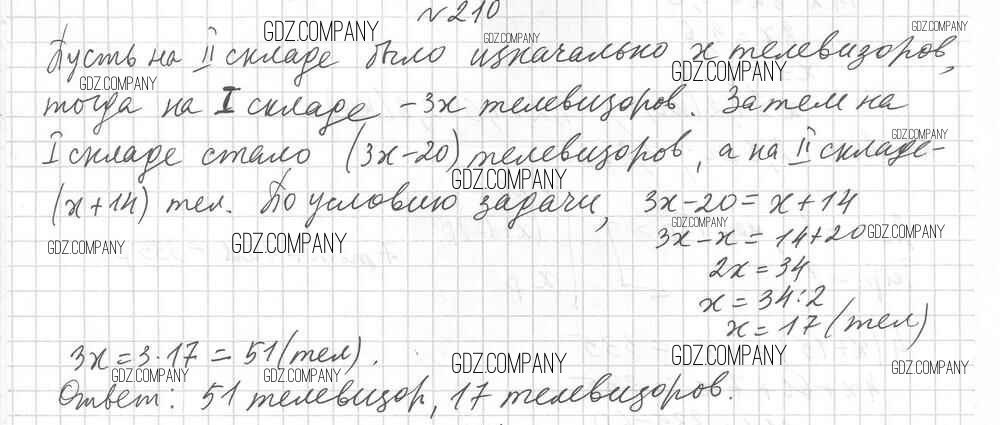 №210
GDZ.COMPANY GDZ.COMPANY GDZ.COMPANY
Пусть на II складе было изначально x телевизоров,
GDZ.COMPANY GDZ.COMPANY
тогда на I складе - 3x телевизоров. Затем на
GDZ.COMPANY
I складе стало (3x-20) телевизоров, а на II складе-
GDZ.COMPANY
(x+14) тел. По условию задачи, 3x-20=x+14
GDZ.COMPANY GDZ.COMPANY GDZ.COMPANY GDZ.COMPANY
3x-x=14+20
2x=34
x=34:2
x=17(тел)
3x=3·17=51(тел).
GDZ.COMPANY GDZ.COMPANY GDZ.COMPANY GDZ.COMPANY GDZ.COMPANY
Ответ: 51 телевизор, 17 телевизоров.